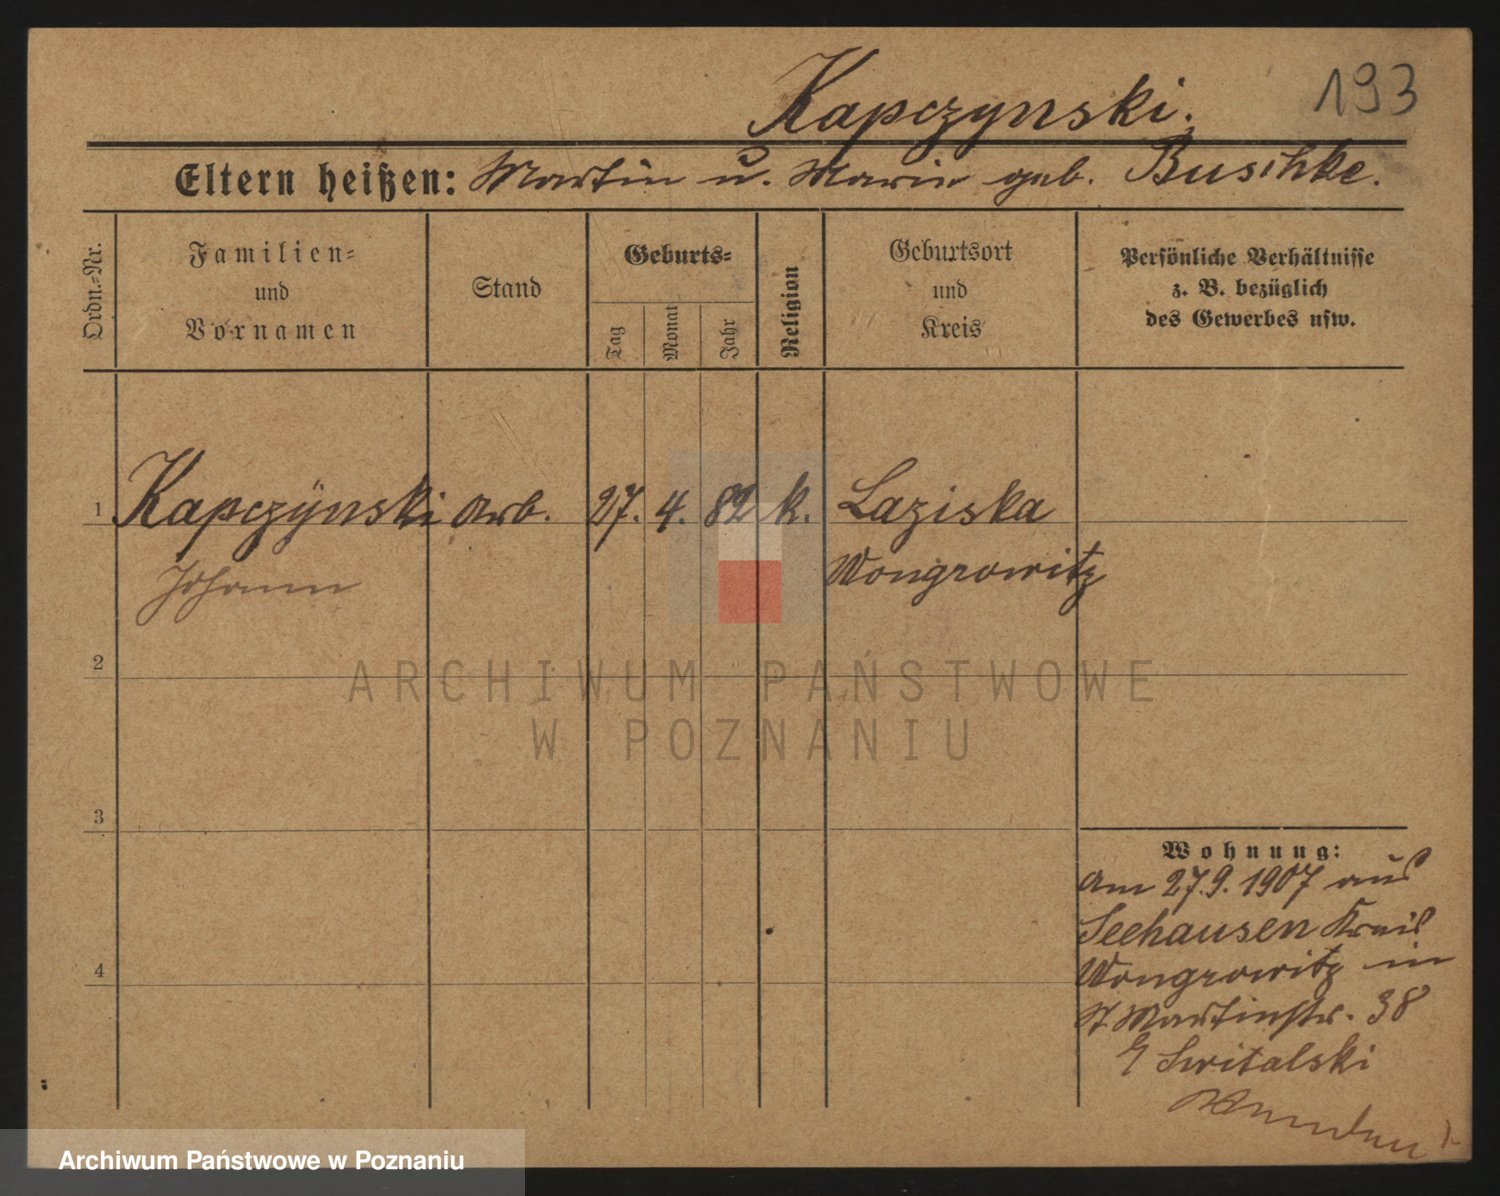 193
Kapczynski.
Eltern heißen: Martin u. Marie geb. Buschke.
Ordn.-Nr.
Familien-
und
Vornamen
Stand
Geburts-
Tag
Monat
Jahr
Religion
Geburtsort
und
Kreis
Persönliche Verhältnisse
z. B. bezüglich
des Gewerbes usw.
1 Kapczÿnski Arb. 27. 4. 82 k. Laziska
Johann Wongrowitz
2
ARCHIWUM PAŃSTWOWE
W POZNANIU
3
Wohnung:
am 27.9.1907 aus
Seehausen Kreis
Wongrowitz in
St Martinstr. 38
Switalski
4
Archiwum Państwowe w Poznaniu